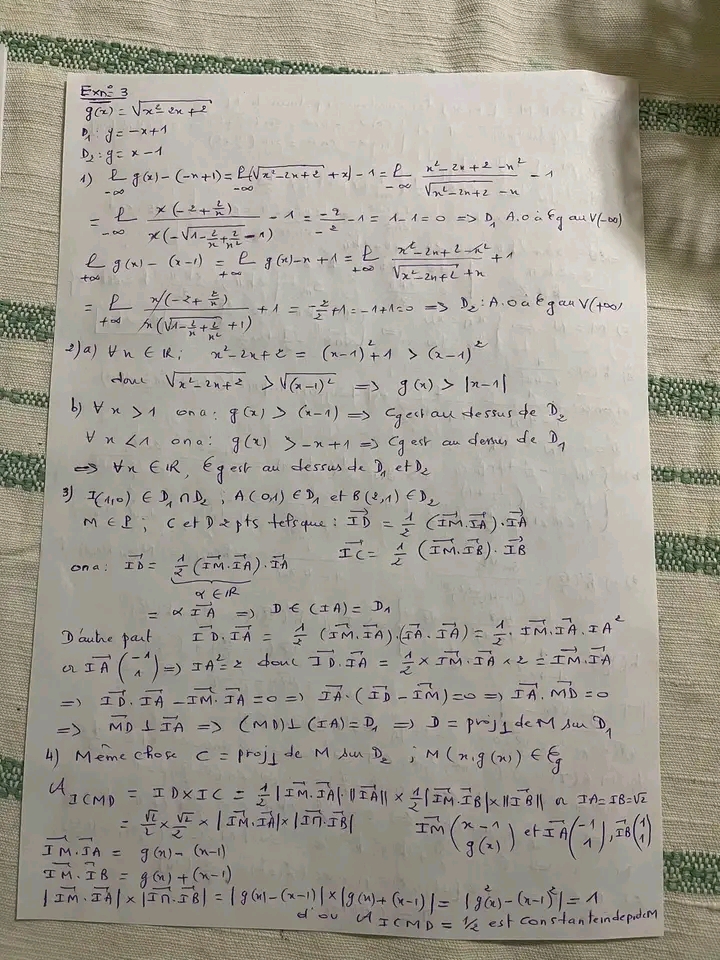 Ex n° 3
g(x) = √(x²-2x+2)
D₁: y = -x+1
D₂: y = x-1
1) ℓ_{-∞} g(x) - (-x+1) = ℓ_{-∞} (√(x²-2x+2) + x) - 1 = ℓ_{-∞} (x²-2x+2-x²)/(√(x²-2x+2) - x) - 1
= ℓ_{-∞} x(-2+2/x)/(x(-√(1-2/x+2/x²) - 1)) - 1 = -2/-2 - 1 = 1-1 = 0 => D₁ A.O à ℰg au V(-∞)
ℓ_{+∞} g(x) - (x-1) = ℓ_{+∞} g(x)-x+1 = ℓ_{+∞} (x²-2x+2-x²)/(√(x²-2x+2) + x) + 1
= ℓ_{+∞} x(-2+2/x)/(x(√(1-2/x+2/x²) + 1)) + 1 = -2/2 + 1 = -1+1=0 => D₂: A.O à ℰg au V(+∞)
2) a) ∀x ∈ IR; x²-2x+2 = (x-1)²+1 > (x-1)²
donc √(x²-2x+2) > √(x-1)² => g(x) > |x-1|
b) ∀x > 1 on a: g(x) > (x-1) => Cg est au dessus de D₂
∀x < 1 on a: g(x) > -x+1 => Cg est au dessus de D₁
=> ∀x ∈ IR, ℰg est au dessus de D₁ et D₂
3) I(1,0) ∈ D₁ ∩ D₂ ; A(0,1) ∈ D₁ et B(2,1) ∈ D₂
M ∈ P ; C et D 2 pts tels que: ID⃗ = 1/2 (IM⃗.IA⃗).IA⃗
IC⃗ = 1/2 (IM⃗.IB⃗).IB⃗
on a: ID⃗ = 1/2 (IM⃗.IA⃗).IA⃗
α ∈ IR
= α IA⃗ => D ∈ (IA) = D₁
D'autre part ID⃗.IA⃗ = 1/2 (IM⃗.IA⃗).(IA⃗.IA⃗) = 1/2.IM⃗.IA⃗.IA²
or IA⃗(-1 1) => IA² = 2 donc ID⃗.IA⃗ = 1/2 × IM⃗.IA⃗ × 2 = IM⃗.IA⃗
=> ID⃗.IA⃗ - IM⃗.IA⃗ = 0 => IA⃗.(ID⃗ - IM⃗) = 0 => IA⃗.MD⃗ = 0
=> MD⃗ ⊥ IA⃗ => (MD) ⊥ (IA) = D₁ => D = proj⊥ de M sur D₁
4) Même chose C = proj⊥ de M sur D₂ ; M(x, g(x)) ∈ ℰg
𝒜_ICMD = ID × IC = 1/2 |IM⃗.IA⃗|.||IA⃗|| × 1/2 |IM⃗.IB⃗| × ||IB⃗|| or IA = IB = √2
= √2/2 × √2/2 × |IM⃗.IA⃗| × |IM⃗.IB⃗| IM⃗(x-1 g(x)) et IA⃗(-1 1), IB⃗(1 1)
IM⃗.IA⃗ = g(x) - (x-1)
IM⃗.IB⃗ = g(x) + (x-1)
|IM⃗.IA⃗| × |IM⃗.IB⃗| = |g(x) - (x-1)| × |g(x) + (x-1)| = |g²(x) - (x-1)²| = 1
d'où 𝒜_ICMD = 1/2 est constante indep de M